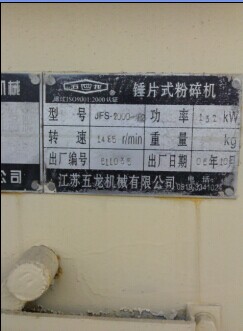 机械
公司
五龙
通过ISO9001:2000认证
锤片式粉碎机
型号 JFS-2000- 功率 132 kW
转速 1485 r/min 重量 kg
出厂编号 出厂日期 06年10月
江苏五龙机械有限公司